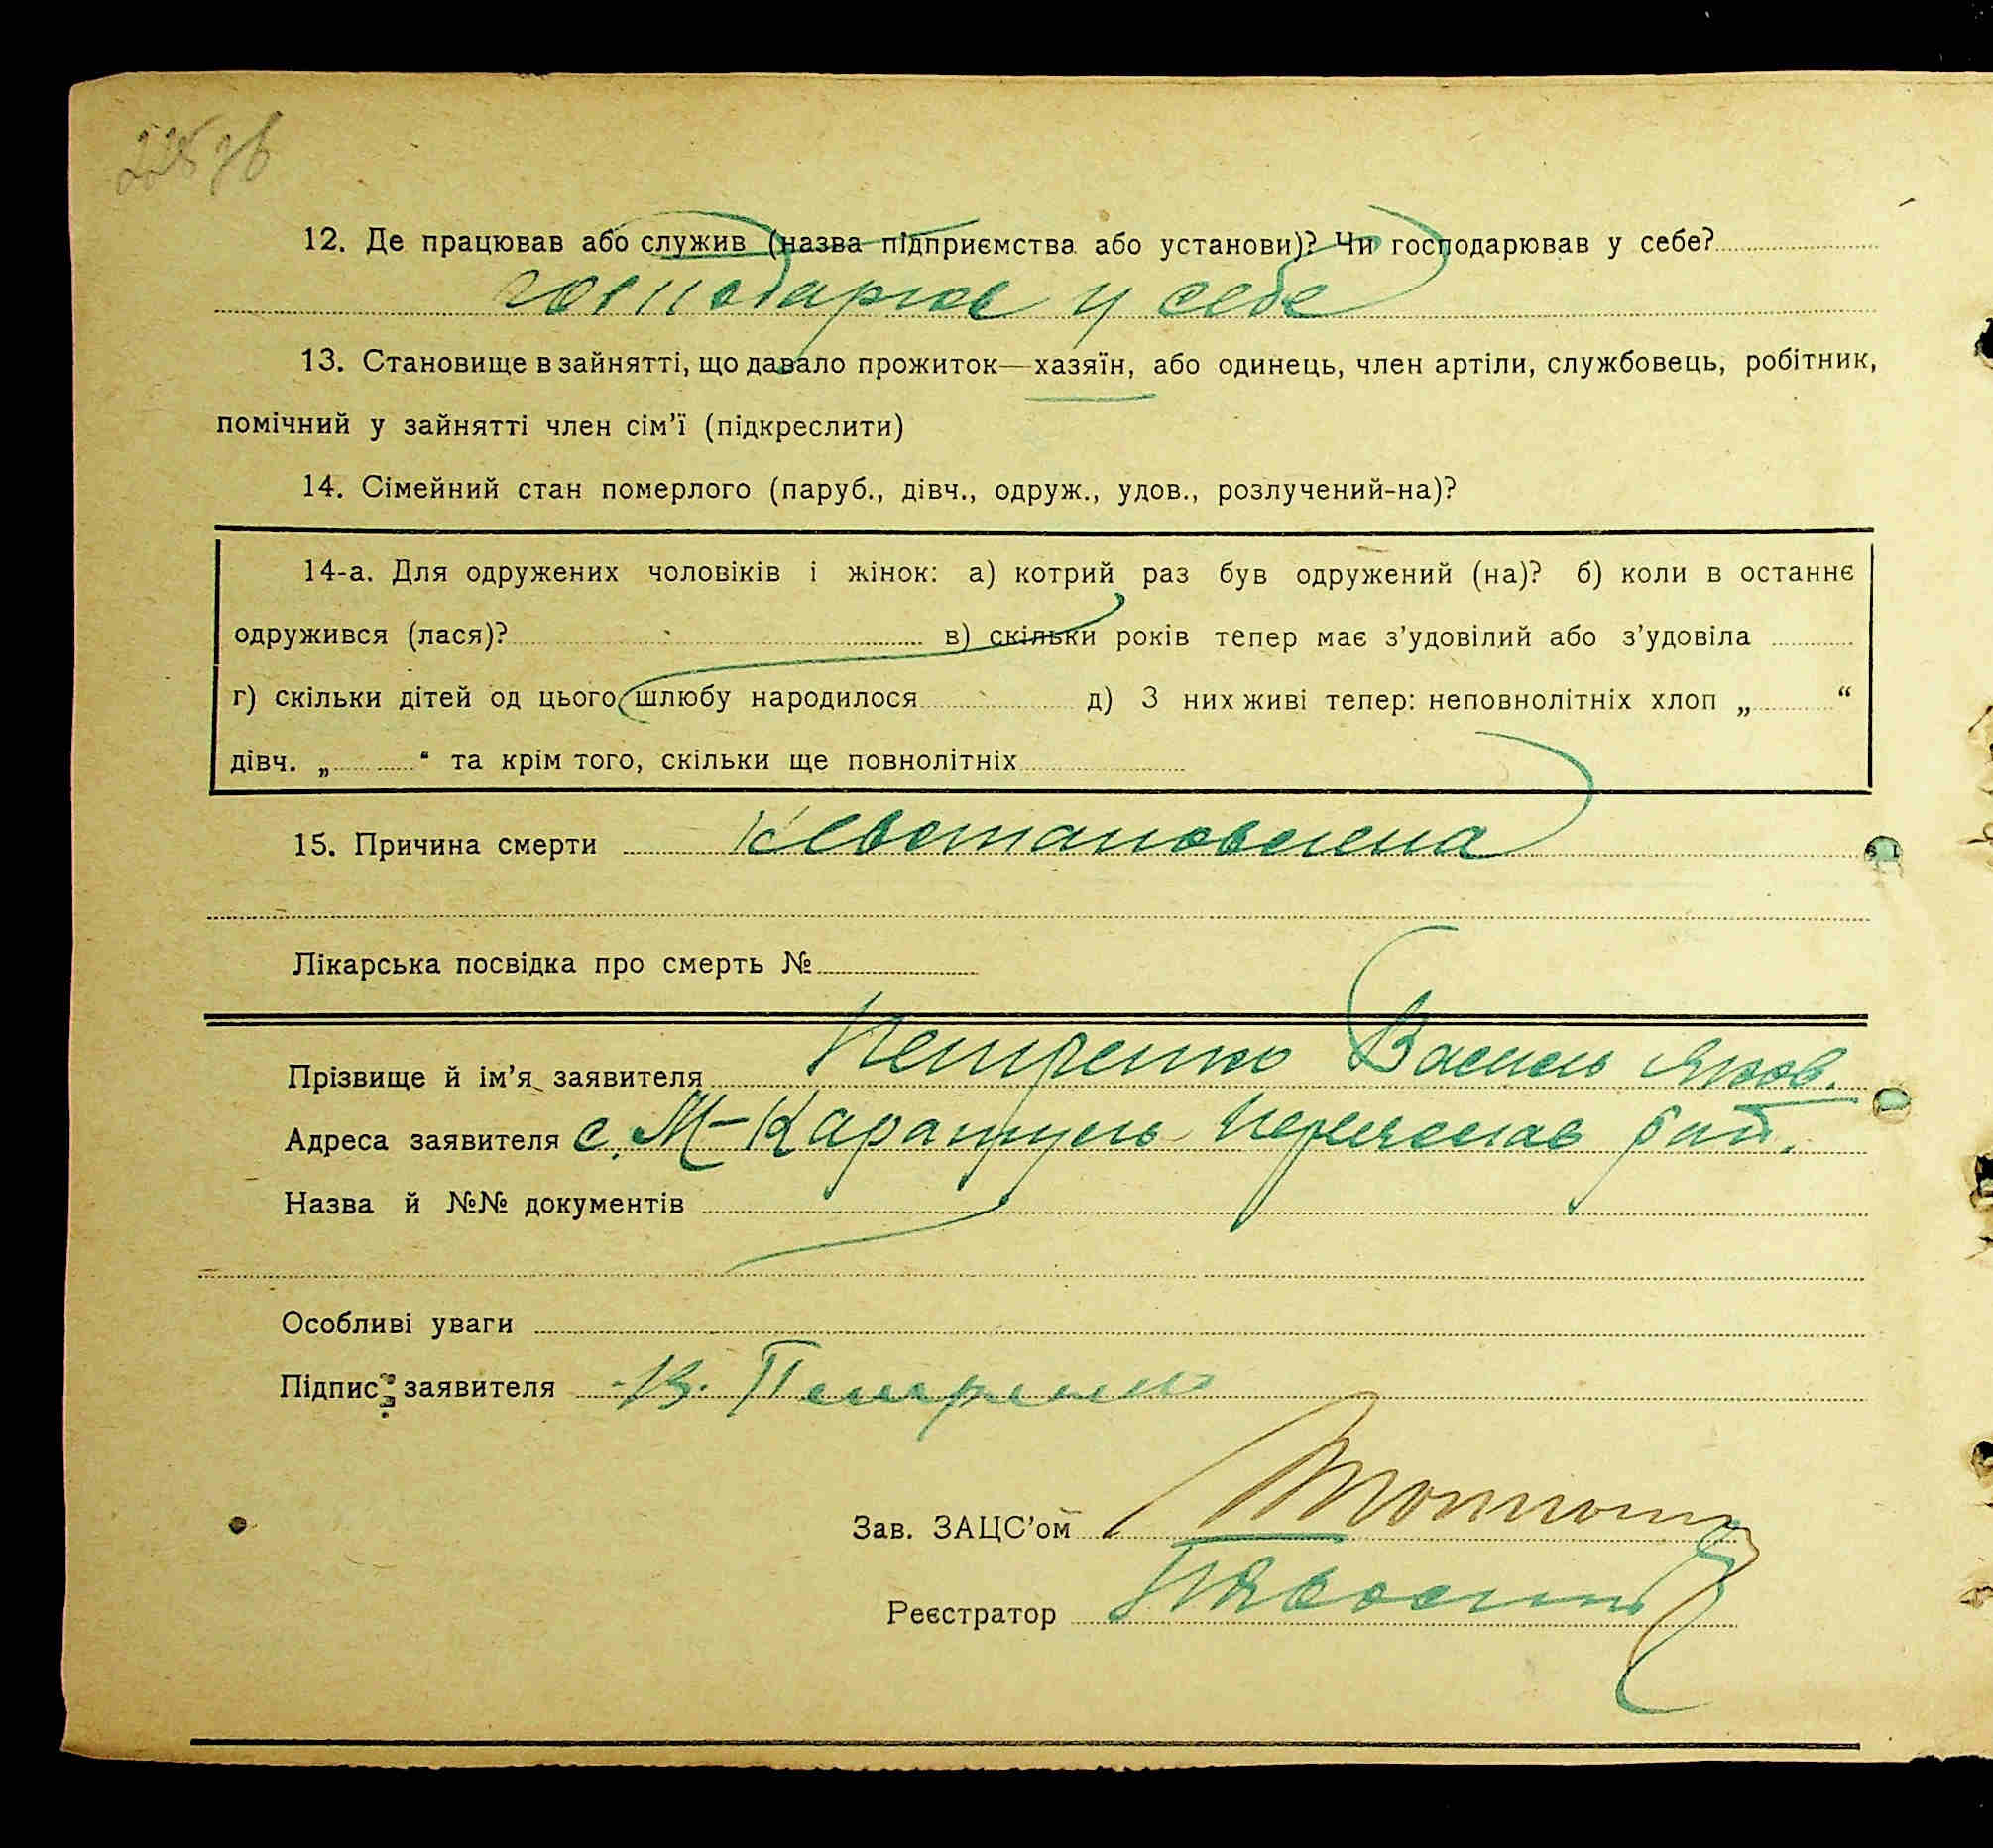 228 зв
12. Де працював або служив (назва підприємства або установи)? Чи господарював у себе?
господарює у себе
13. Становище в зайнятті, що давало прожиток—хазяїн, або одинець, член артіли, службовець, робітник,
помічний у зайнятті член сім’ї (підкреслити)
14. Сімейний стан померлого (паруб., дівч., одруж., удов., розлучений-на)?
14-а. Для одружених чоловіків і жінок: а) котрий раз був одружений (на)? б) коли в останнє
одружився (лася)? в) скільки років тепер має з’удовілий або з’удовіла
г) скільки дітей од цього шлюбу народилося д) З них живі тепер: неповнолітніх хлоп „ “
дівч. „ “ та крім того, скільки ще повнолітніх
15. Причина смерти невстановлена
Лікарська посвідка про смерть №
Прізвище й ім’я заявителя Петренко Василь Яков.
Адреса заявителя с. М-Каратуль Переяслав рай.
Назва й №№ документів
Особливі уваги
Підпис заявителя В. Петренко
Зав. ЗАЦС’ом
Реєстратор